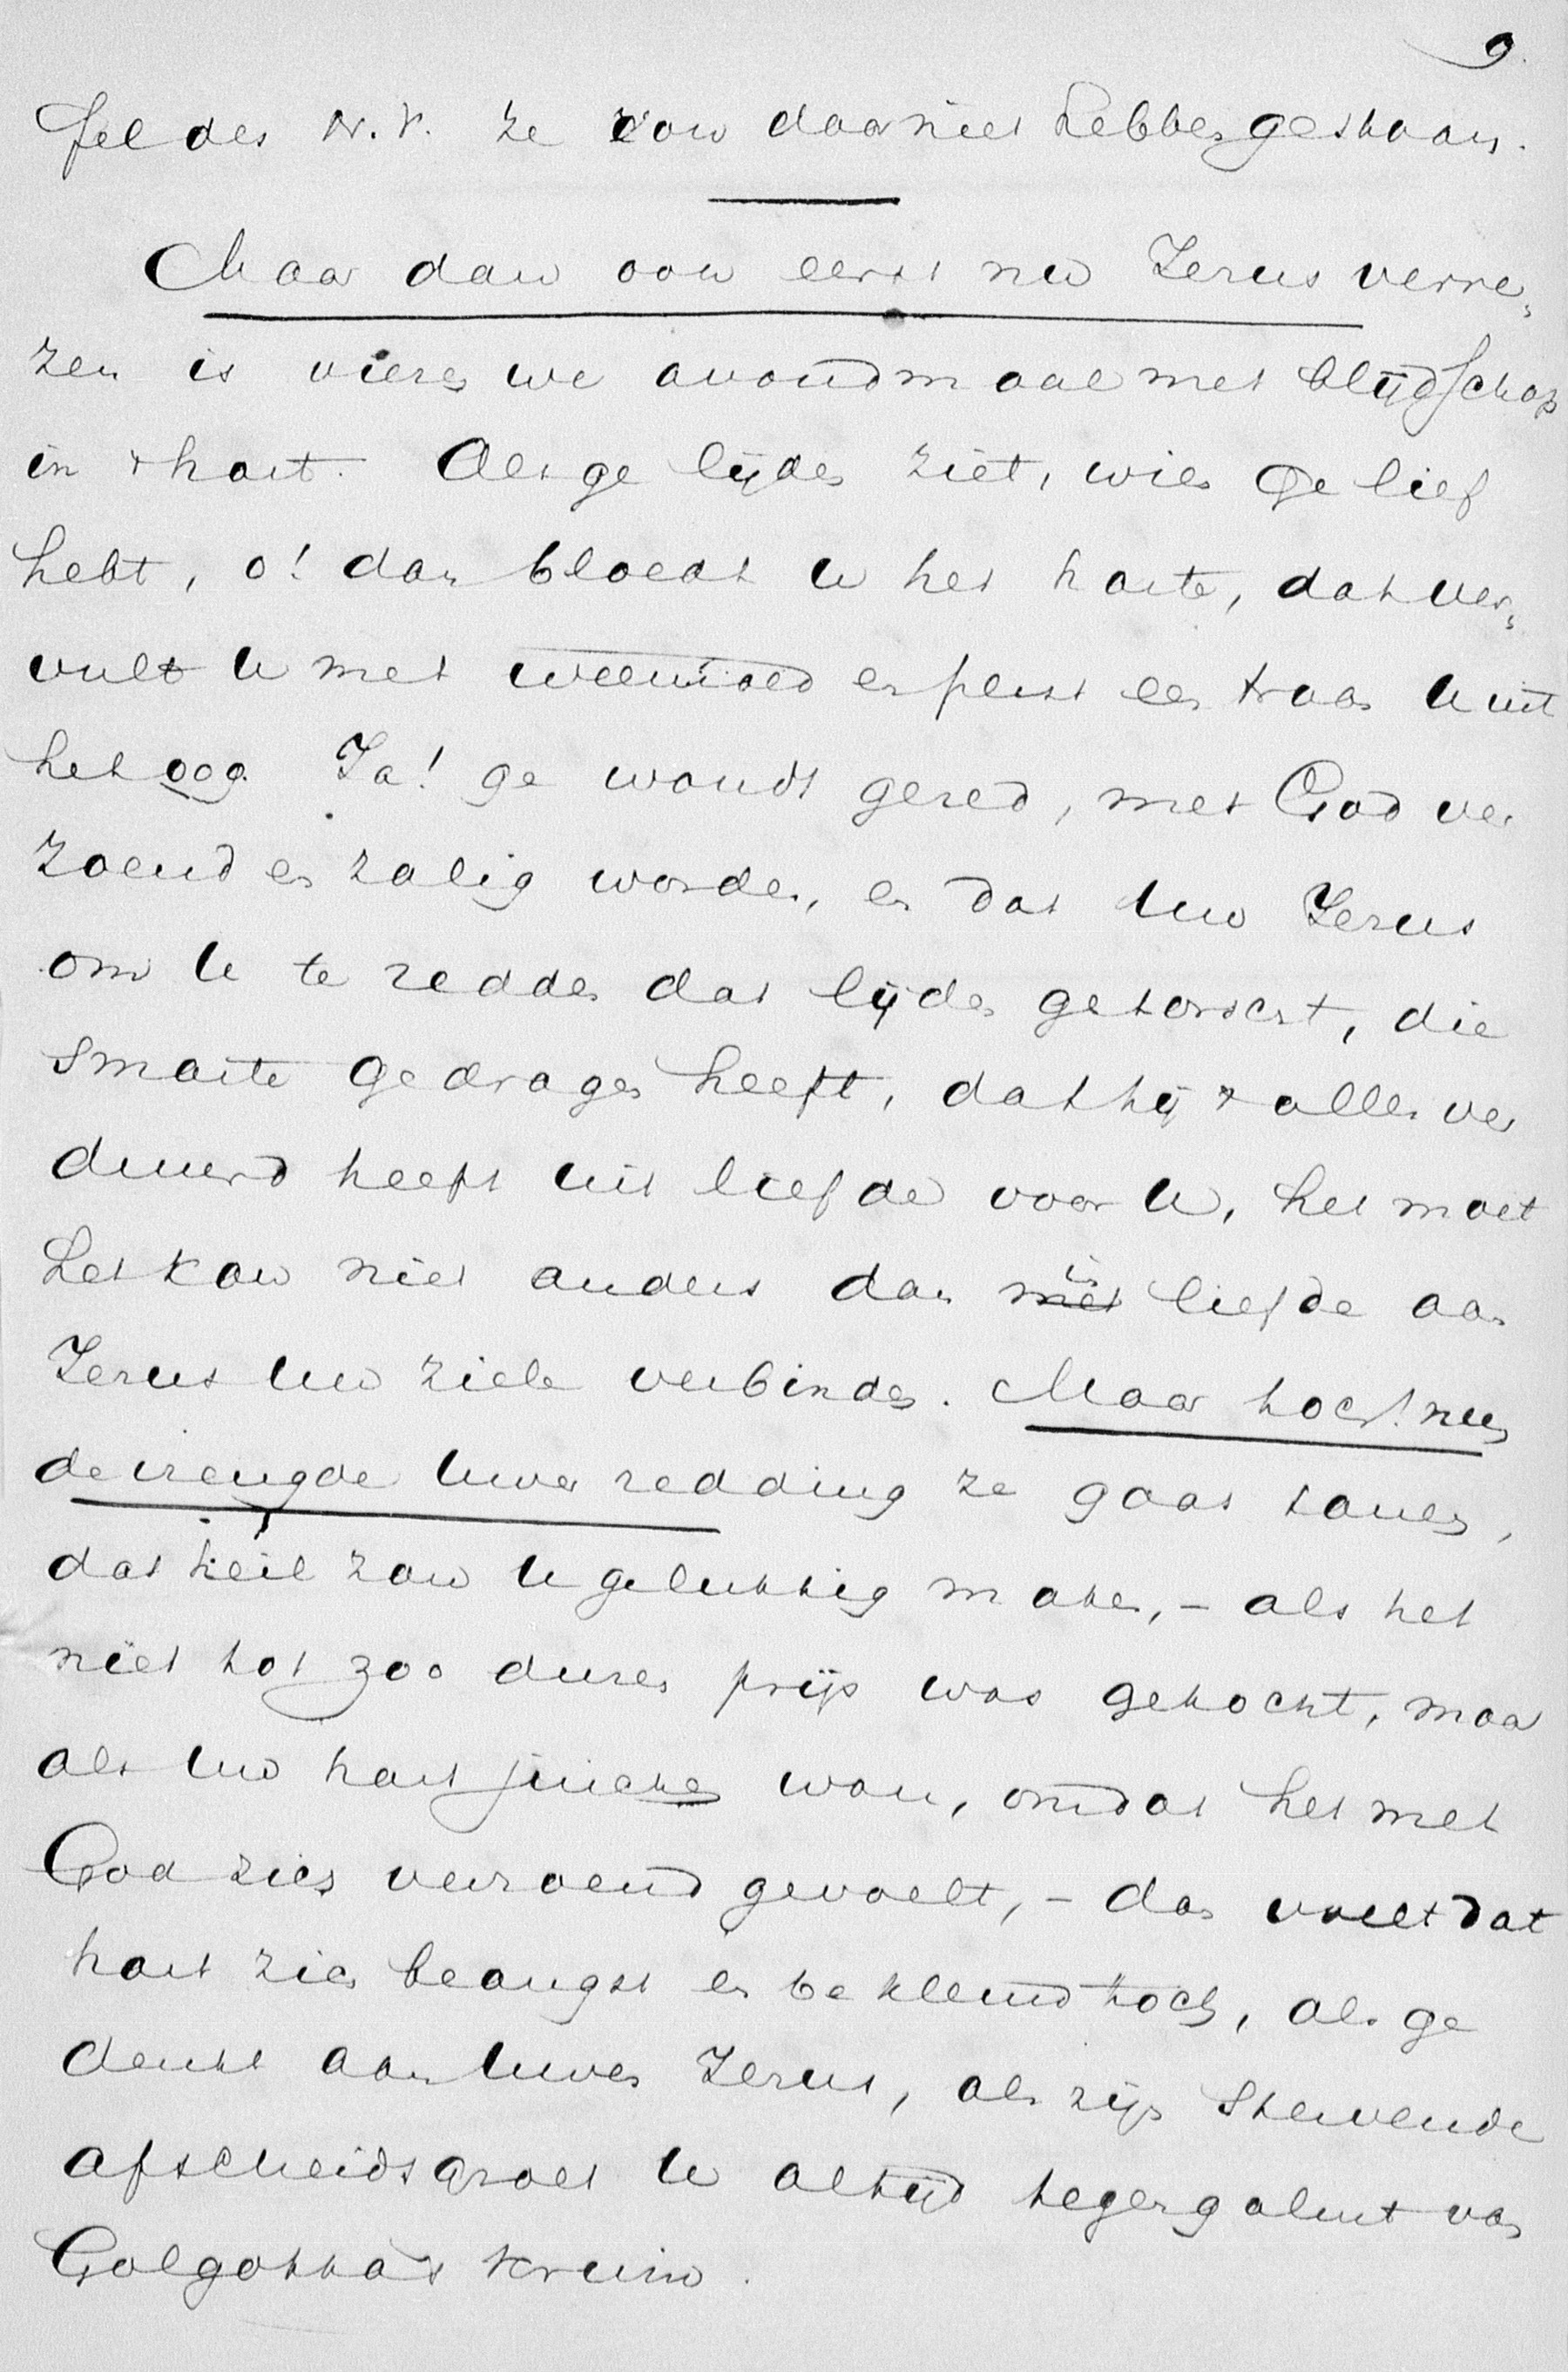 9.
fel des N.V. ze zou daar niet hebben gestaan.
Maar dan ook eerst nu Jezus verre-
zen is vieren we avondmaal met blijdschap
in 't hart. Als ge lijden ziet, wien Ge lief
hebt, o! dan bloedt U het harte, dat ver-
vult U met weemoed en perst een traan U uit
het oog. Ja! ge wordt gered, met God ver
zoend en zalig worden, en dat Uw Jezus
om U te redden dat lijden getorscht, die
smarte gedragen heeft, dat hij 't alles ver
duurd heeft uit liefde voor U, het moet
het kan niet anders dan in liefde aan
Jezus Uw ziele verbinden. Maar toch! neen
de vreugde Uwer redding ze gaat
dat heil zou U gelukkig maken, - als het
niet tot zoo duren prijs was gekocht, maar
als Uw hart juichen wou, omdat het met
God zich verzoend gevoelt, - dan voelt dat
hart zich beangst en beklemd toch, als ge
denkt aan Uwen Jezus, als zijn stervende
afscheidsgroet U altijd tegengalmt van
Golgotha's kruin.